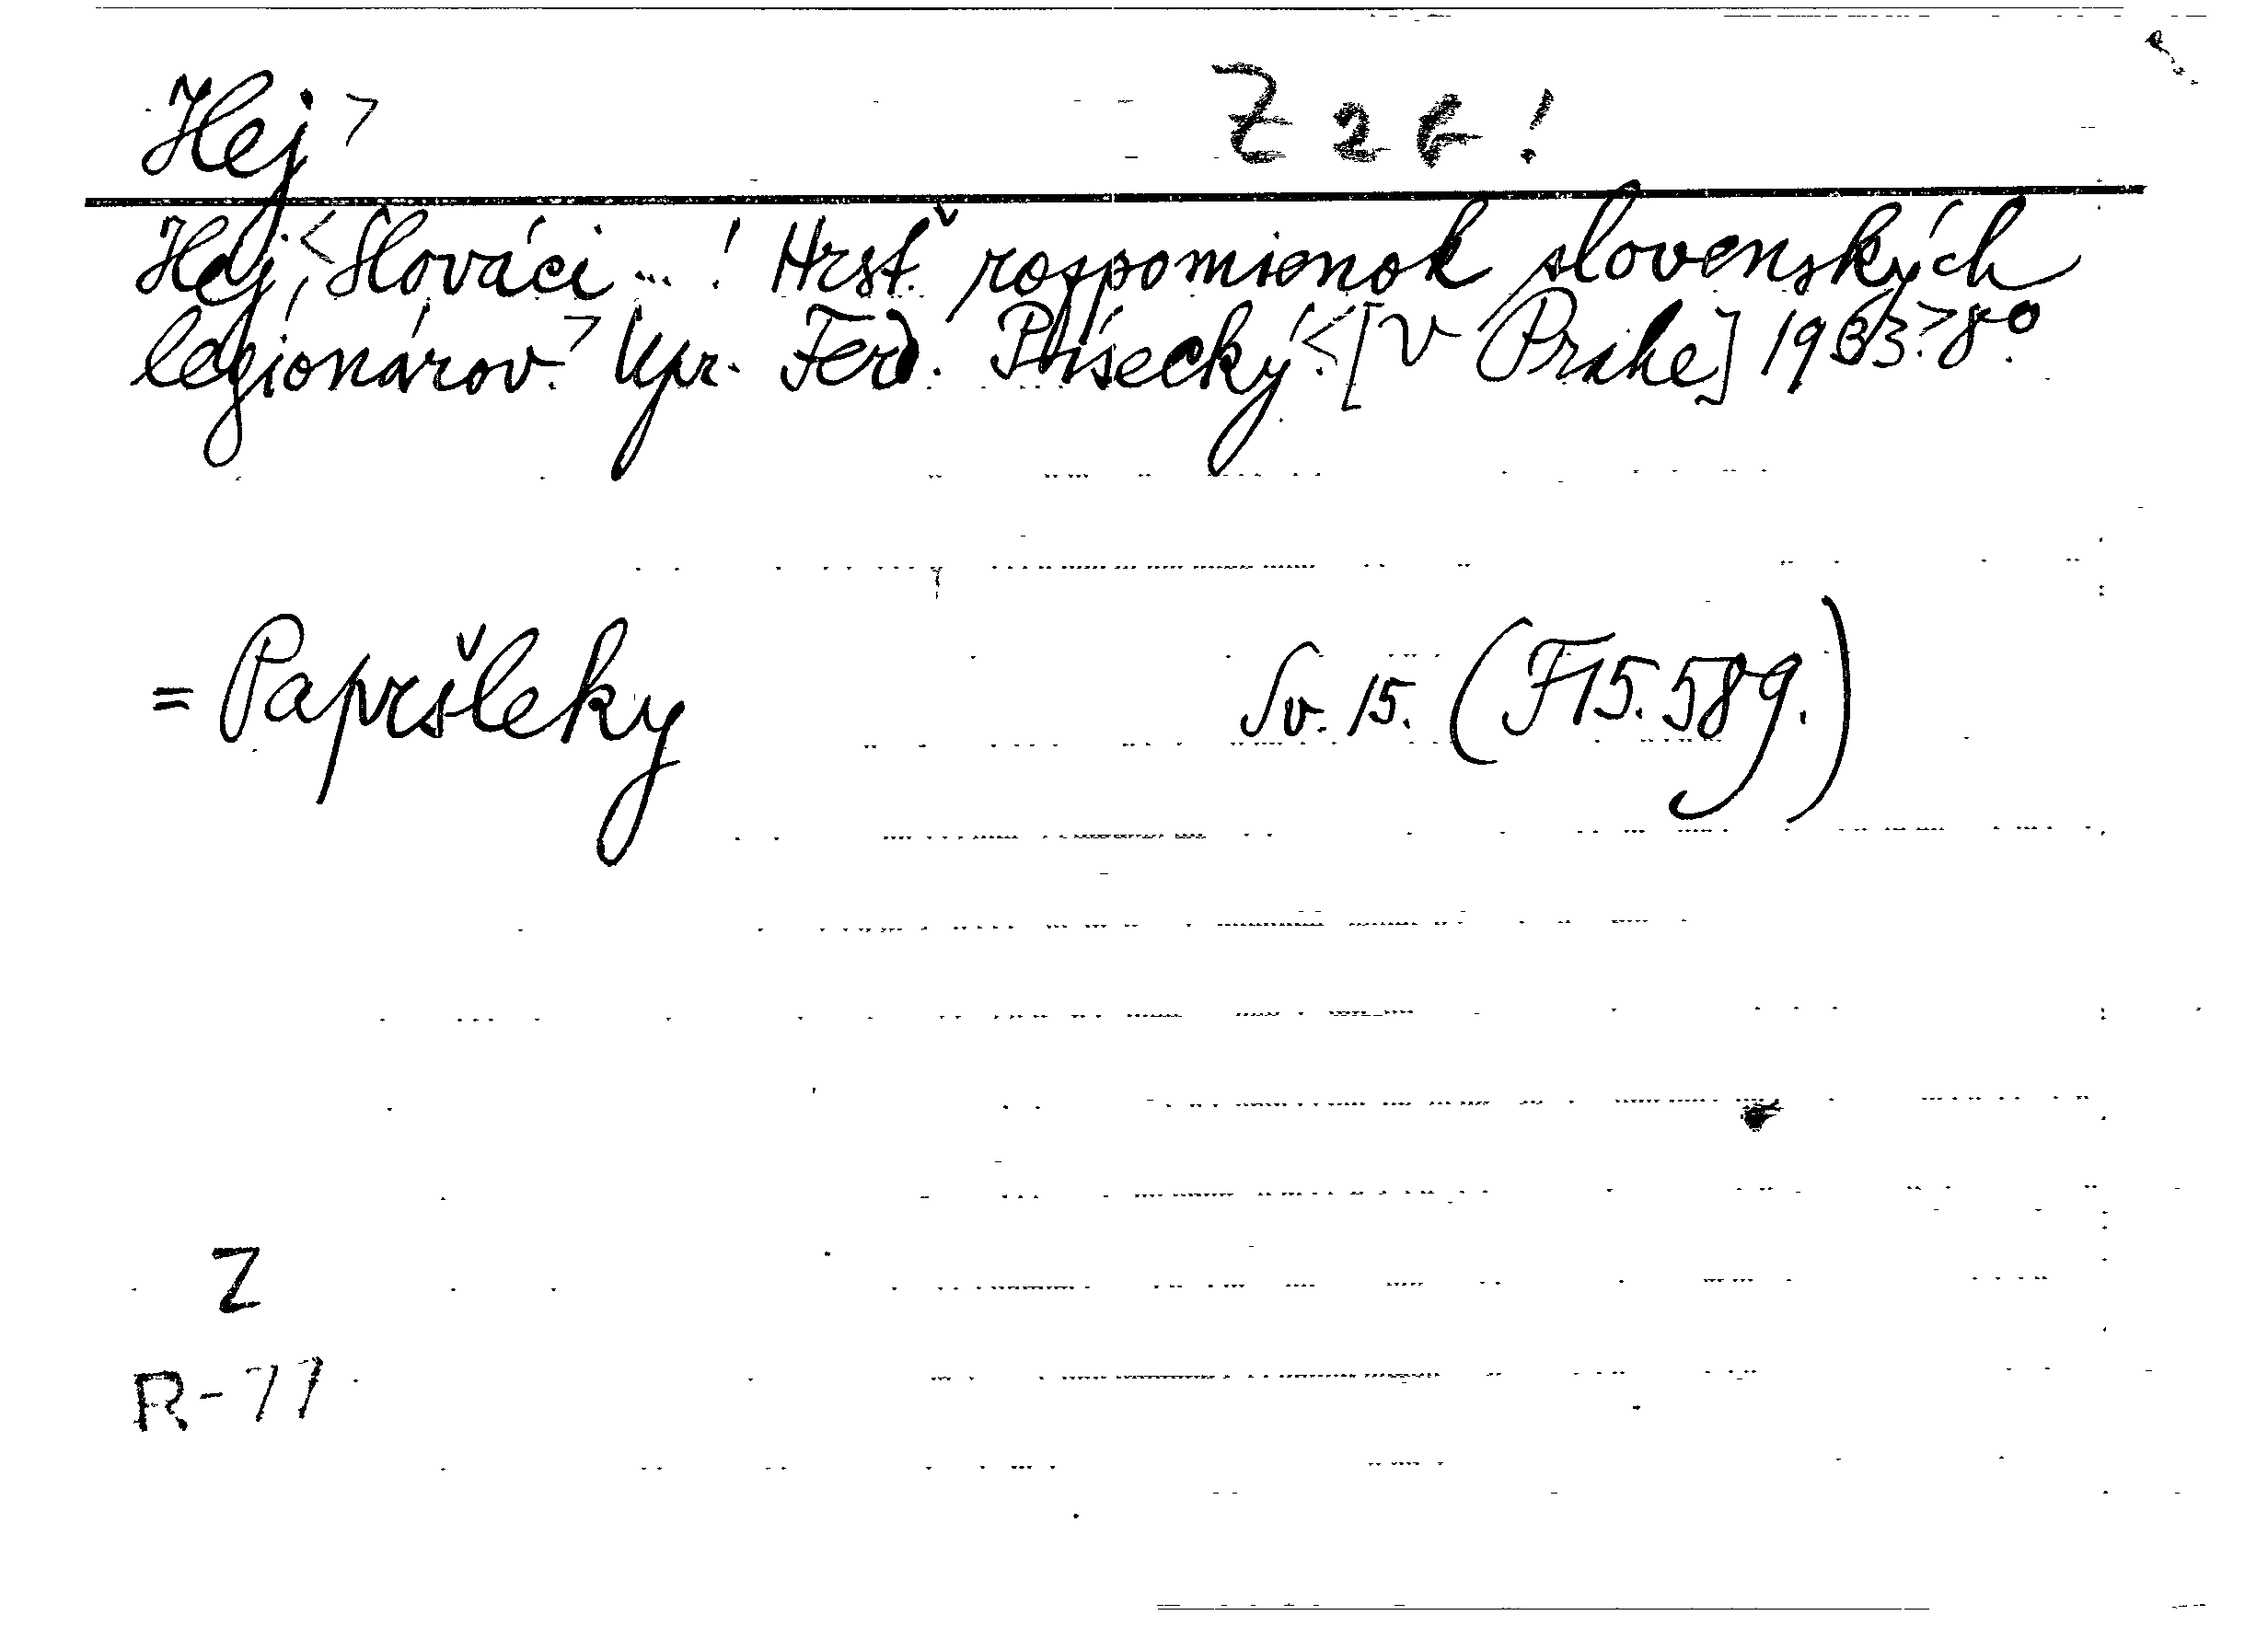 Hej >
Z 2 F !
Hej,< Slováci ... ! Hrsť rospomienok slovenských
legionárov.> Upr. Ferd. Písecký.< [V Prahe] 1933.> 8°.
= Papršleky Sv. 15. (F 15.589.)
Z
R-77